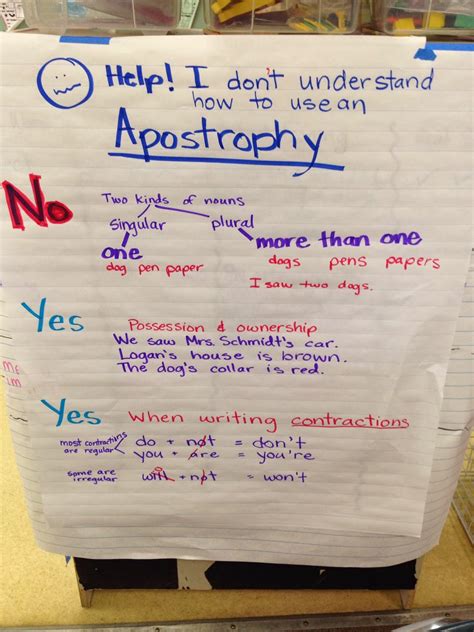 Help! I don't understand
how to use an
Apostrophy
No
Two kinds of nouns
singular plural
one more than one
dog pen paper dogs pens papers
I saw two dogs.
Yes Possession & ownership
We saw Mrs. Schmidt's car.
Logan's house is brown.
The dog's collar is red.
Yes When writing contractions
most contractions
are regular
do + not = don't
you + are = you're
some are
irregular
will + not = won't